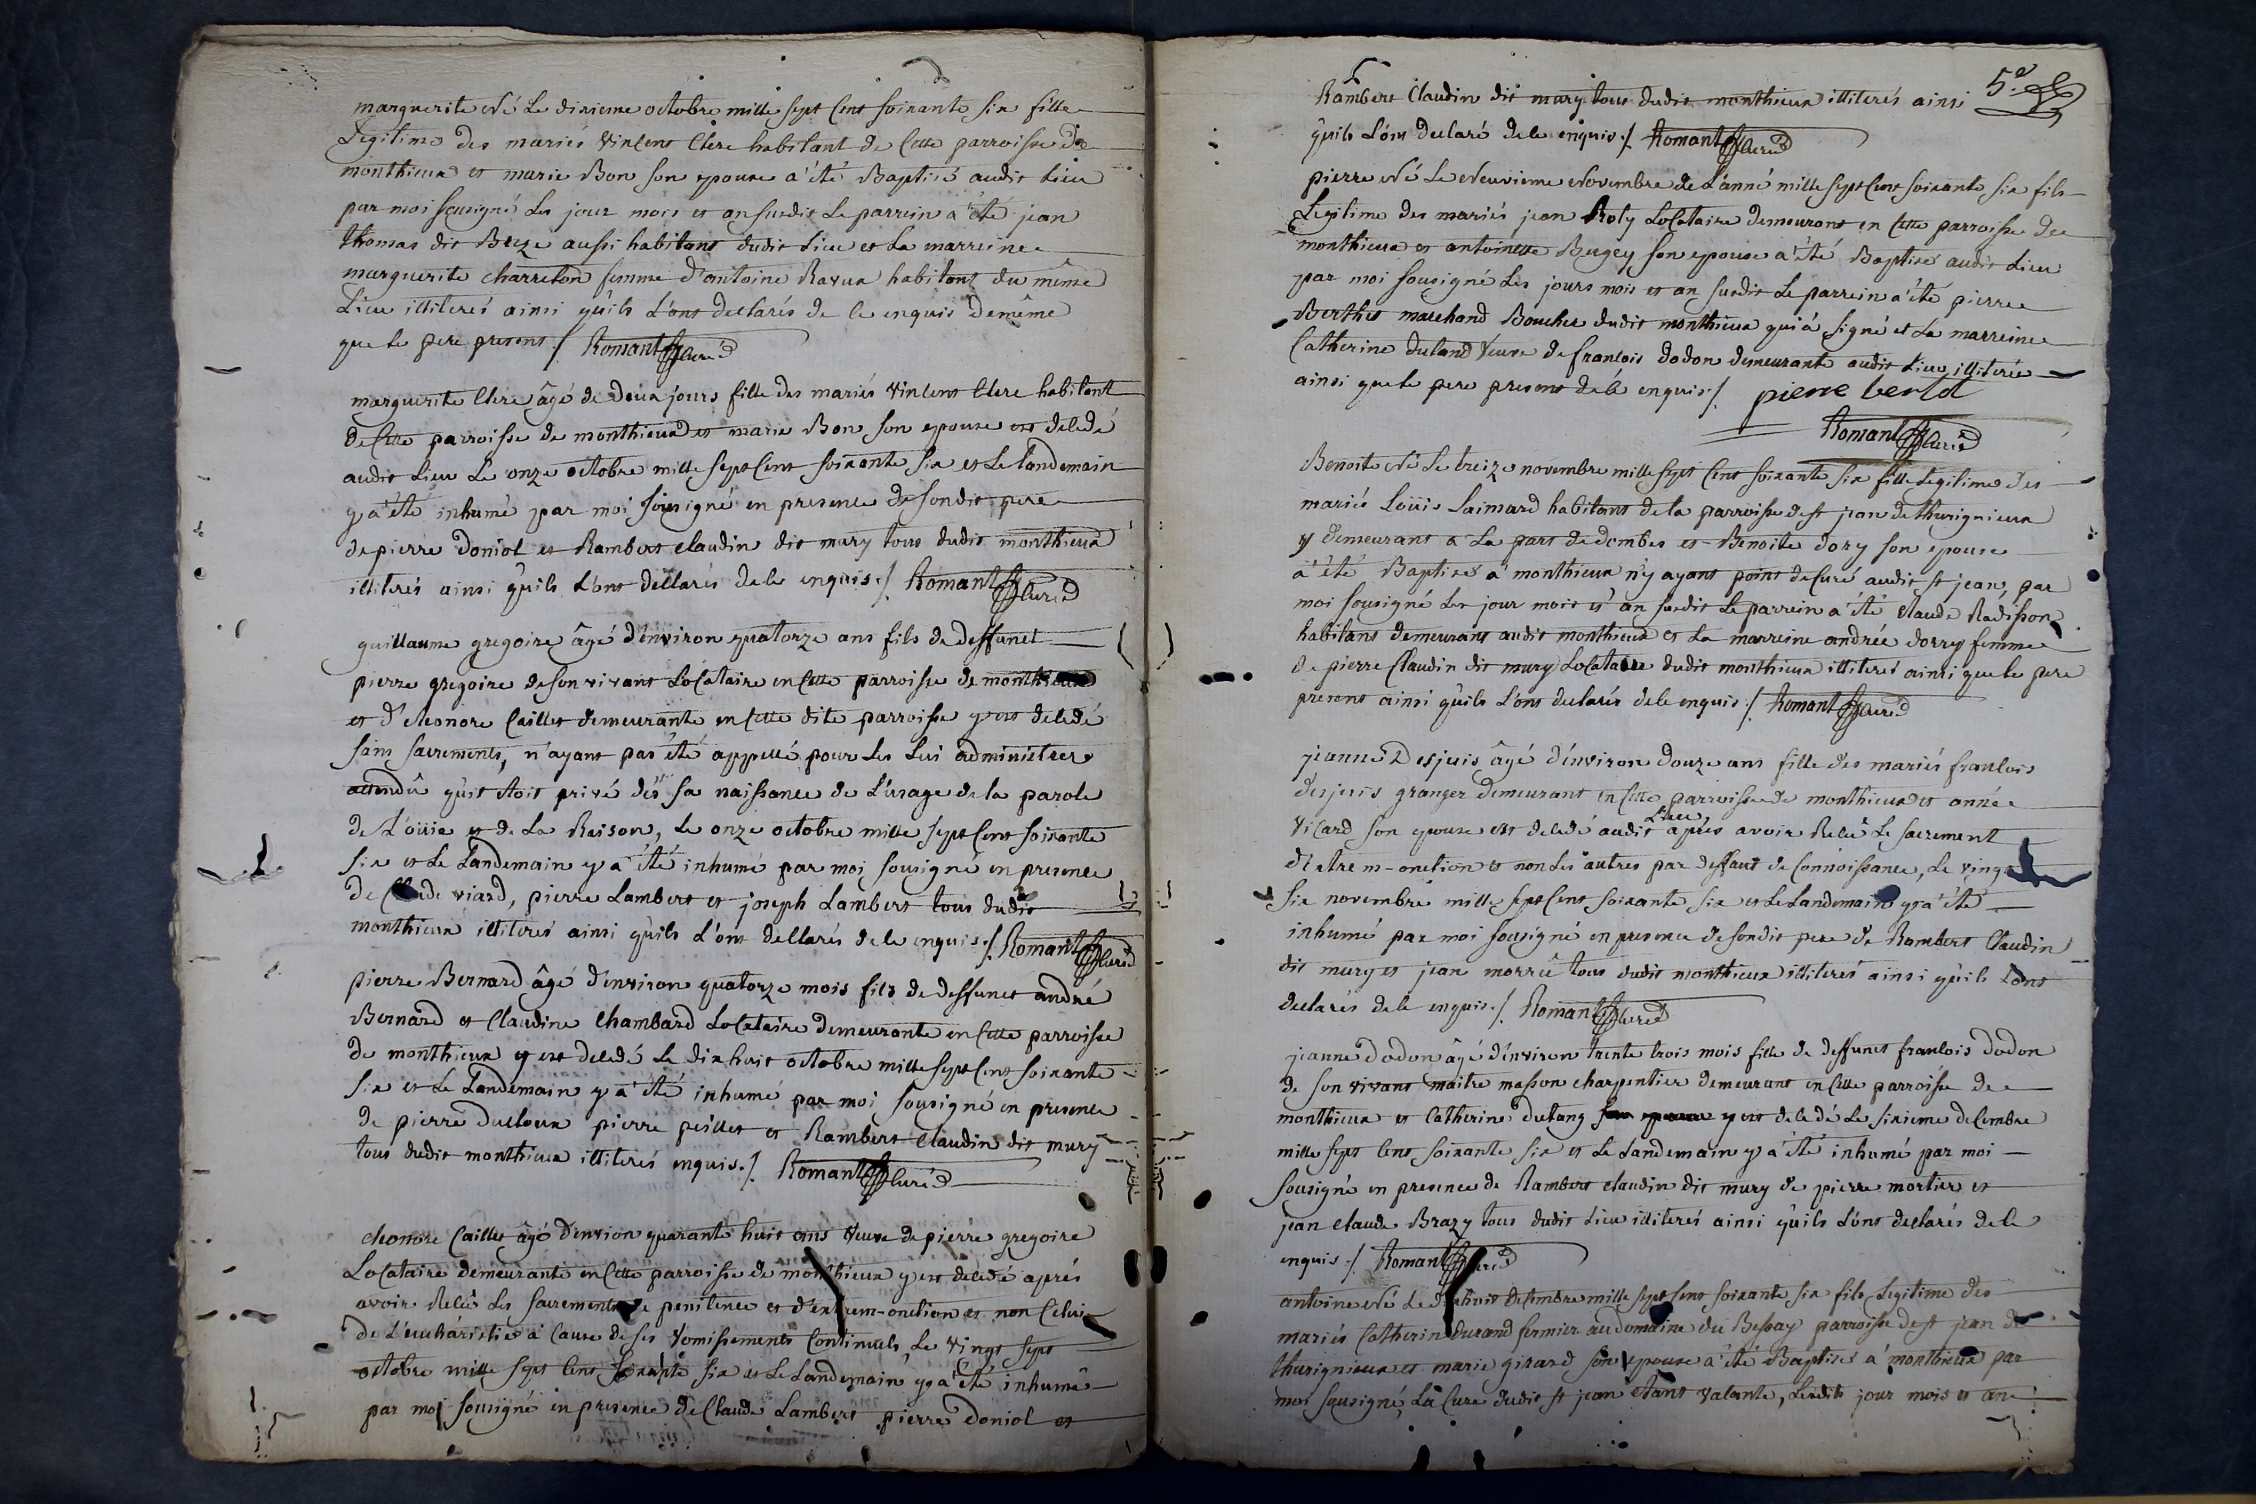 marguerite Né Le dixieme octobre mille sept Cent soixante six fille
Legitime des mariés vincens Clere habitant de Cette parroisse de
monthieux et marie Bon son epouse a'été Baptisé audit Lieu
par moi sousigné Les jour mois et an susdit Le parrein a été jean
thomas dit Beze aussi habitant dudit Lieu et La marreine
marguerite charreton femme d'antoine Ravux habitant du même
Lieu illiterés ainsi quils L'ont declarés de Ce enquis demême
que Le pere present ./. Romant Curé
marguerite Clere âgé de deux jours fille des mariés vincens Clere habitant
de Cette parroisse de monthieux et marie Bon son epouse est decedé
audit Lieu Le onze octobre mille sept Cent soixante six et Le Landemain
y a'été inhumé par moi sousigné en presence de sondit pere
de pierre doniol et Rambert Claudin dit mury tous dudit monthieux
illiterés ainsi quils L'ont declarés de Ce enquis ./. Romant Curé
guillaume gregoire âgé d'environ quatorze ans fils de deffunct
pierre gregoire de son vivant Locataire en Cette parroisse de monthieux
et d'eleonore Caillet demeurante en Cette dite parroisse y est decedé
sans sacrements, n'ayant pas été appellé pour Les Lui administrer
attendû quit etoit privé dès sa naissance de L'usage de la parole
de L'oüie et de La Raison, Le onze octobre mille sept Cent soixante
six et Le Landemain y a'été inhumé par moi sousigné en presence
de Claude viard, pierre Lambert et joseph Lambert tous dudit
monthieux illiterés ainsi quils L'ont declarés de Ce enquis ./. Romant Curé
pierre Bernard âgé d'environ quatorze mois fils de deffunct andré
Bernard et Claudine Chambard Locataire demeurante en Cette parroisse
de monthieux y est decedé Le dix huit octobre mille sept Cent soixante
six et Le Landemain y a'été inhumé par moi sousigné en presence
de pierre ducloux pierre peillet et Rambert Claudin dit mury
tous dudit monthieux illiterés enquis ./. Romant Curé
eleonore Caillet âgé d'environ quarante huit ans veuve de pierre gregoire
Locataire demeurante en Cette parroisse de monthieux y est decedé aprés
avoir Reçû Les sacrements de penitence et d'extrem-onction et non Celui
de L'eucharistie a Cause de ses vomissements Continuels, Le vingt sept
octobre mille sept Cent soixante six et Le Landemain y a'été inhumé
par moi sousigné en presence de Claude Lambert pierre doniol et
5e
Rambert Claudin dit mury tous dudit monthieux illiterés ainsi
quils L'ont declaré de Ce enquis ./. Romant Curé
pierre Né Le Neuvieme Novembre de L'anné mille sept Cent soixante six fils
Legitime des mariés jean Roly Locataire demeurant en Cette parroisse de
monthieux et antoinette Bugey son epouse a'été Baptisé audit Lieu
par moi sousigné Les jours mois et an susdit Le parrein a'été pierre
Berthet marchand Boucher dudit monthieux qui a signé et La marreine
Catherine duland veuve de francois dodon demeurante audit Lieu illiterée
ainsi que Le pere present de Ce enquis ./. pierre bertet
Romant Curé
Benoite Né Le treize novembre mille sept Cent soixante six fille Legitime des
mariés Loüis Saimard habitant de la parroisse de st jean de thurignieux
y demeurant a La part de dombes et Benoite dory son epouse
a'été Baptisé a monthieux n'y ayant point de Curé audit st jean, par
moi sousigné Les jour mois et an susdit Le parrein a'été Claude Radisson
habitant demeurant audit monthieux et La marreine andrée dorry femme
de pierre Claudin dit mury Locataire dudit monthieux illiterés ainsi que Le pere
present ainsi quils L'ont declarés de Ce enquis ./. Romant Curé
jeanne Desjuis âgé d'environ douze ans fille des mariés francois
desjuis granger demeurant en Cette parroisse de monthieux et année
vicard son epouse est decedé audit Lieu aprés avoir Reçû Le sacrement
d'extrem-onction et non Les autres par deffaut de Connoissance, Le vingt
six novembre mille sept Cent soixante six et Le Landemain y a'été
inhumé par moi sousigné en presence de sondit pere de Rambert Claudin
dit mury et jean morrû tous dudit monthieux illiterés ainsi quils L'ont
declarés de Ce enquis ./. Romant Curé
jeanne dodon âgé d'environ trente trois mois fille de deffunct francois dodon
de son vivant maitre masson charpentier demeurant en Cette parroisse de
monthieux et Catherine dutang son epouse y est decedé Le sixieme decembre
mille sept Cent soixante six et Le Landemain y a'été inhumé par moi
sousigné en presence de Rambert Claudin dit mury de pierre mortier et
jean Claude Brazy tous dudit Lieu illiterés ainsi quils L'ont declarés de Ce
enquis ./. Romant Curé
antoine Né Le dixhuit decembre mille sept Cent soixante six fils Legitime des
mariés Catherin durand fermier au domaine du Bessay parroisse de st jean de
thurignieux et marie girard son epouse a'été Baptisé a monthieux par
moi sousigné, La Cure dudit st jean etant vacante, Lesdits jour mois et an